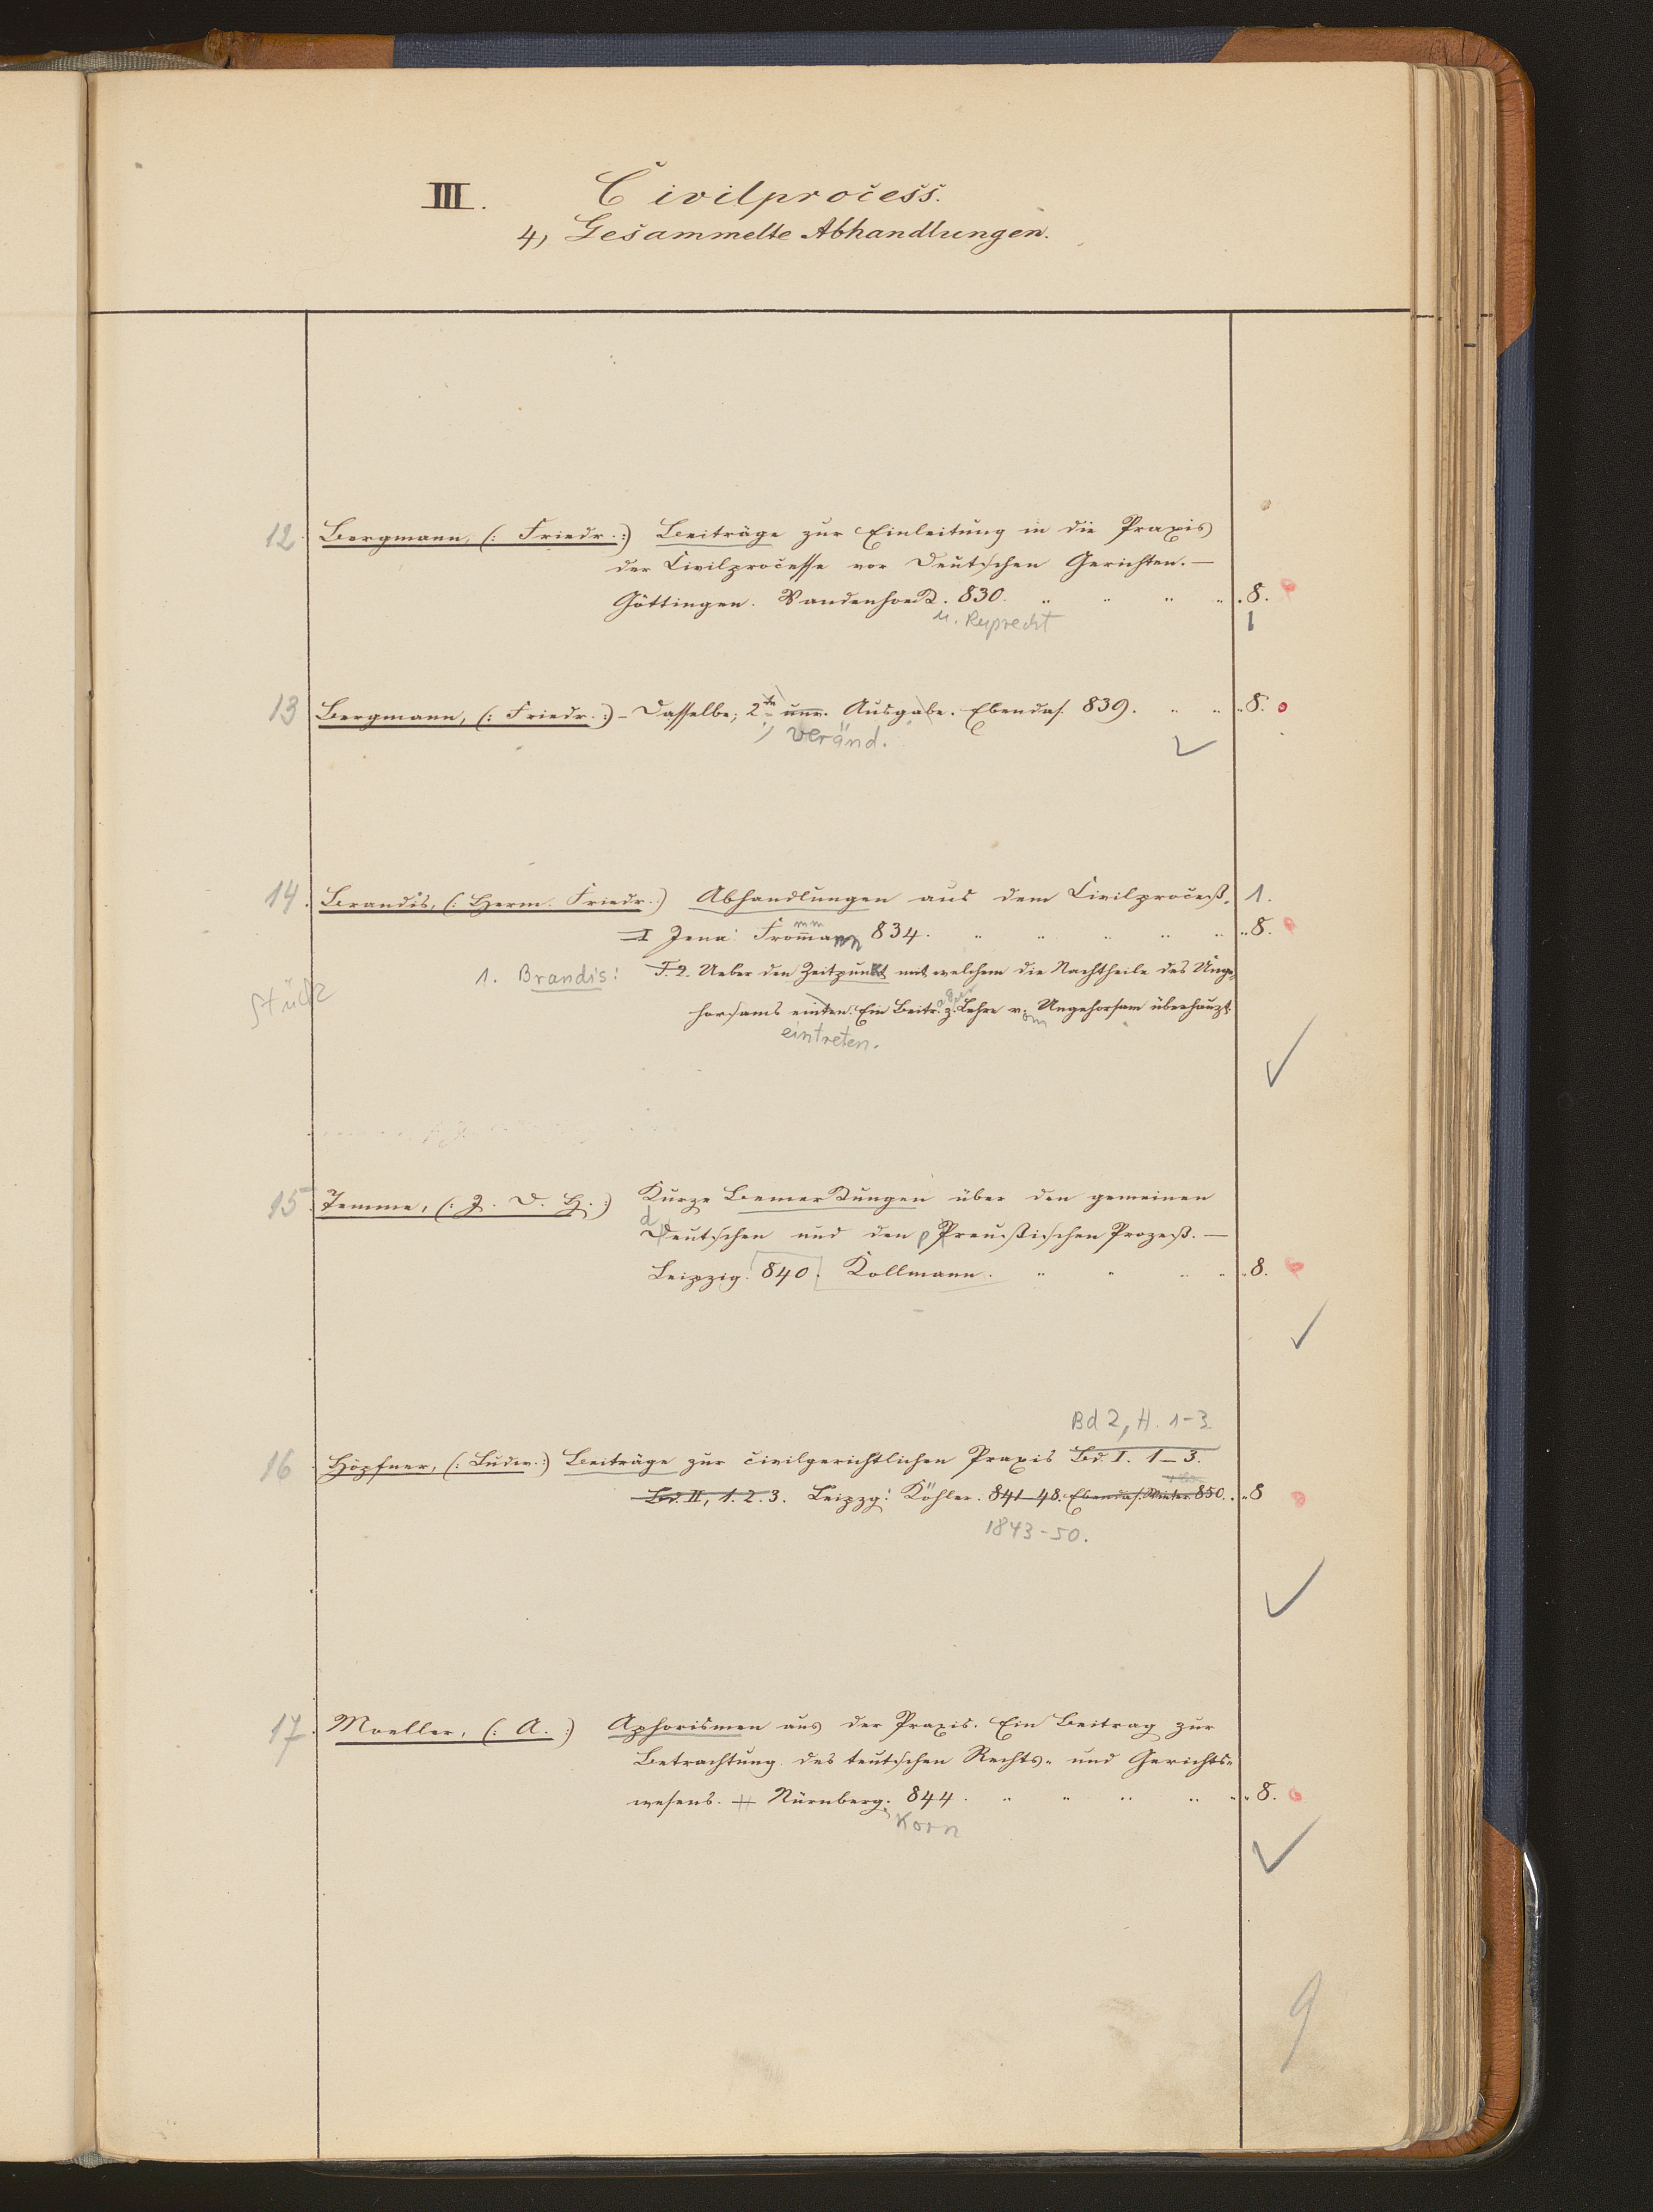 III. Civilprocess.
4, Gesammelte Abhandlungen.
12 Bergmann, (: Friedr. :) Beiträge zur Einleitung in die Praxis
der Civilprocesse vor Deutschen Gerichten. —
Göttingen. Vandenhoeck. 830. " " " " 8.
u. Ruprecht 1
13 Bergmann, (: Friedr. :) – Dasselbe; 2te unv. Ausgabe. Ebendas. 839. " " 8.
veränd.
14. Brandis, (: Herm. Friedr. :) Abhandlungen aus dem Civilproceß. 1.
I Jena: Frommann 834. " " " " " 8.
1. Brandis: T. 2. Ueber den Zeitpunkt mit welchem die Nachtheile des Unge-
Stück
horsams eintren. Ein Beitr. z. Lehre v. Ungehorsam überhaupt.
eintreten.
15 Temme, (: J. D. H. :) Kurze Bemerkungen über den gemeinen
Deutschen und den Preußischen Prozeß. —
Leipzig. 840. Kollmann. " " " " 8.
Bd 2, H. 1-3
16 Höpfner, (: Ludw. :) Beiträge zur civilgerichtlichen Praxis Bd. I. 1–3.
Bd. II, 1. 2. 3. Leipzg: Köhler. 841–48. Ebendas. 850. " 8
1843-50.
17. Moeller, (: A. :) Aphorismen aus der Praxis. Ein Beitrag zur
Betrachtung des teutschen Rechts- und Gerichts-
wesens. Nürnberg. 844. " " " " " 8.
Korn
9